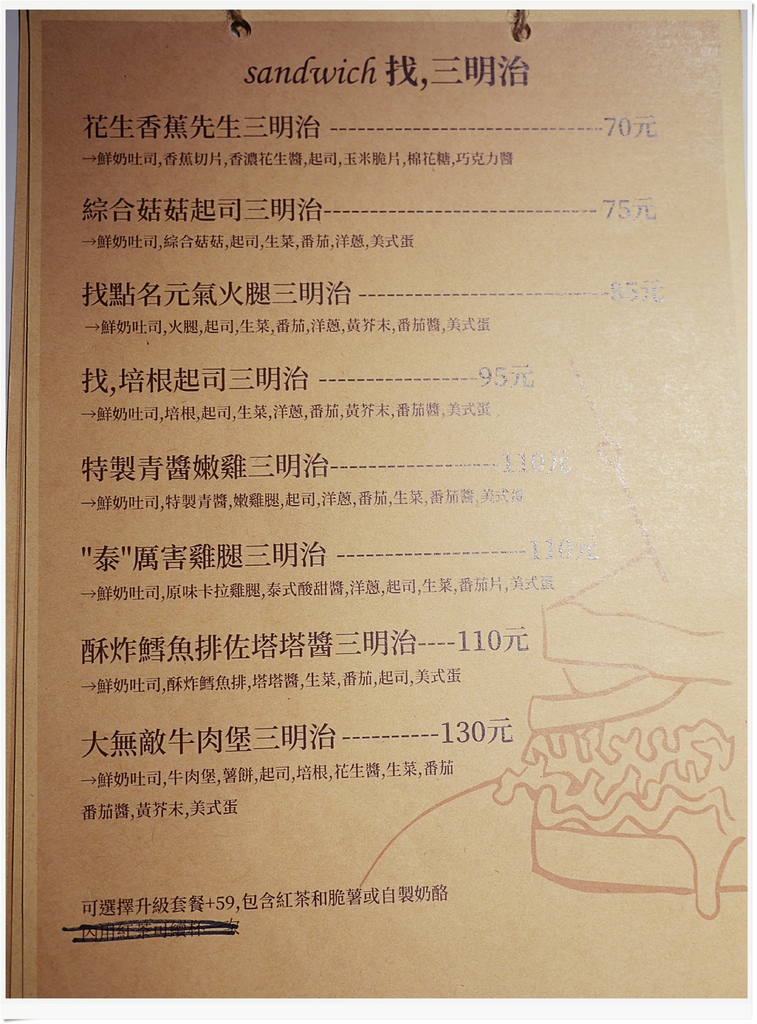 sandwich 找,三明治
花生香蕉先生三明治 ------------------------------70元
→鮮奶吐司,香蕉切片,香濃花生醬,起司,玉米脆片,棉花糖,巧克力醬
綜合菇菇起司三明治------------------------------ 75元
→鮮奶吐司,綜合菇菇,起司,生菜,番茄,洋蔥,美式蛋
找點名元氣火腿三明治 ----------------------------85元
→鮮奶吐司,火腿,起司,生菜,番茄,洋蔥,黃芥末,番茄醬,美式蛋
找,培根起司三明治 ------------------95元
→鮮奶吐司,培根,起司,生菜,洋蔥,番茄,黃芥末,番茄醬,美式蛋
特製青醬嫩雞三明治-------------------110元
→鮮奶吐司,特製青醬,嫩雞腿,起司,洋蔥,番茄,生菜,番茄醬,美式蛋
"泰"厲害雞腿三明治 ---------------------110元
→鮮奶吐司,原味卡拉雞腿,泰式酸甜醬,洋蔥,起司,生菜,番茄片,美式蛋
酥炸鱈魚排佐塔塔醬三明治----110元
→鮮奶吐司,酥炸鱈魚排,塔塔醬,生菜,番茄,起司,美式蛋
大無敵牛肉堡三明治 ----------130元
→鮮奶吐司,牛肉堡,薯餅,起司,培根,花生醬,生菜,番茄
番茄醬,黃芥末,美式蛋
可選擇升級套餐+59,包含紅茶和脆薯或自製奶酪
內用紅茶可續杯一次